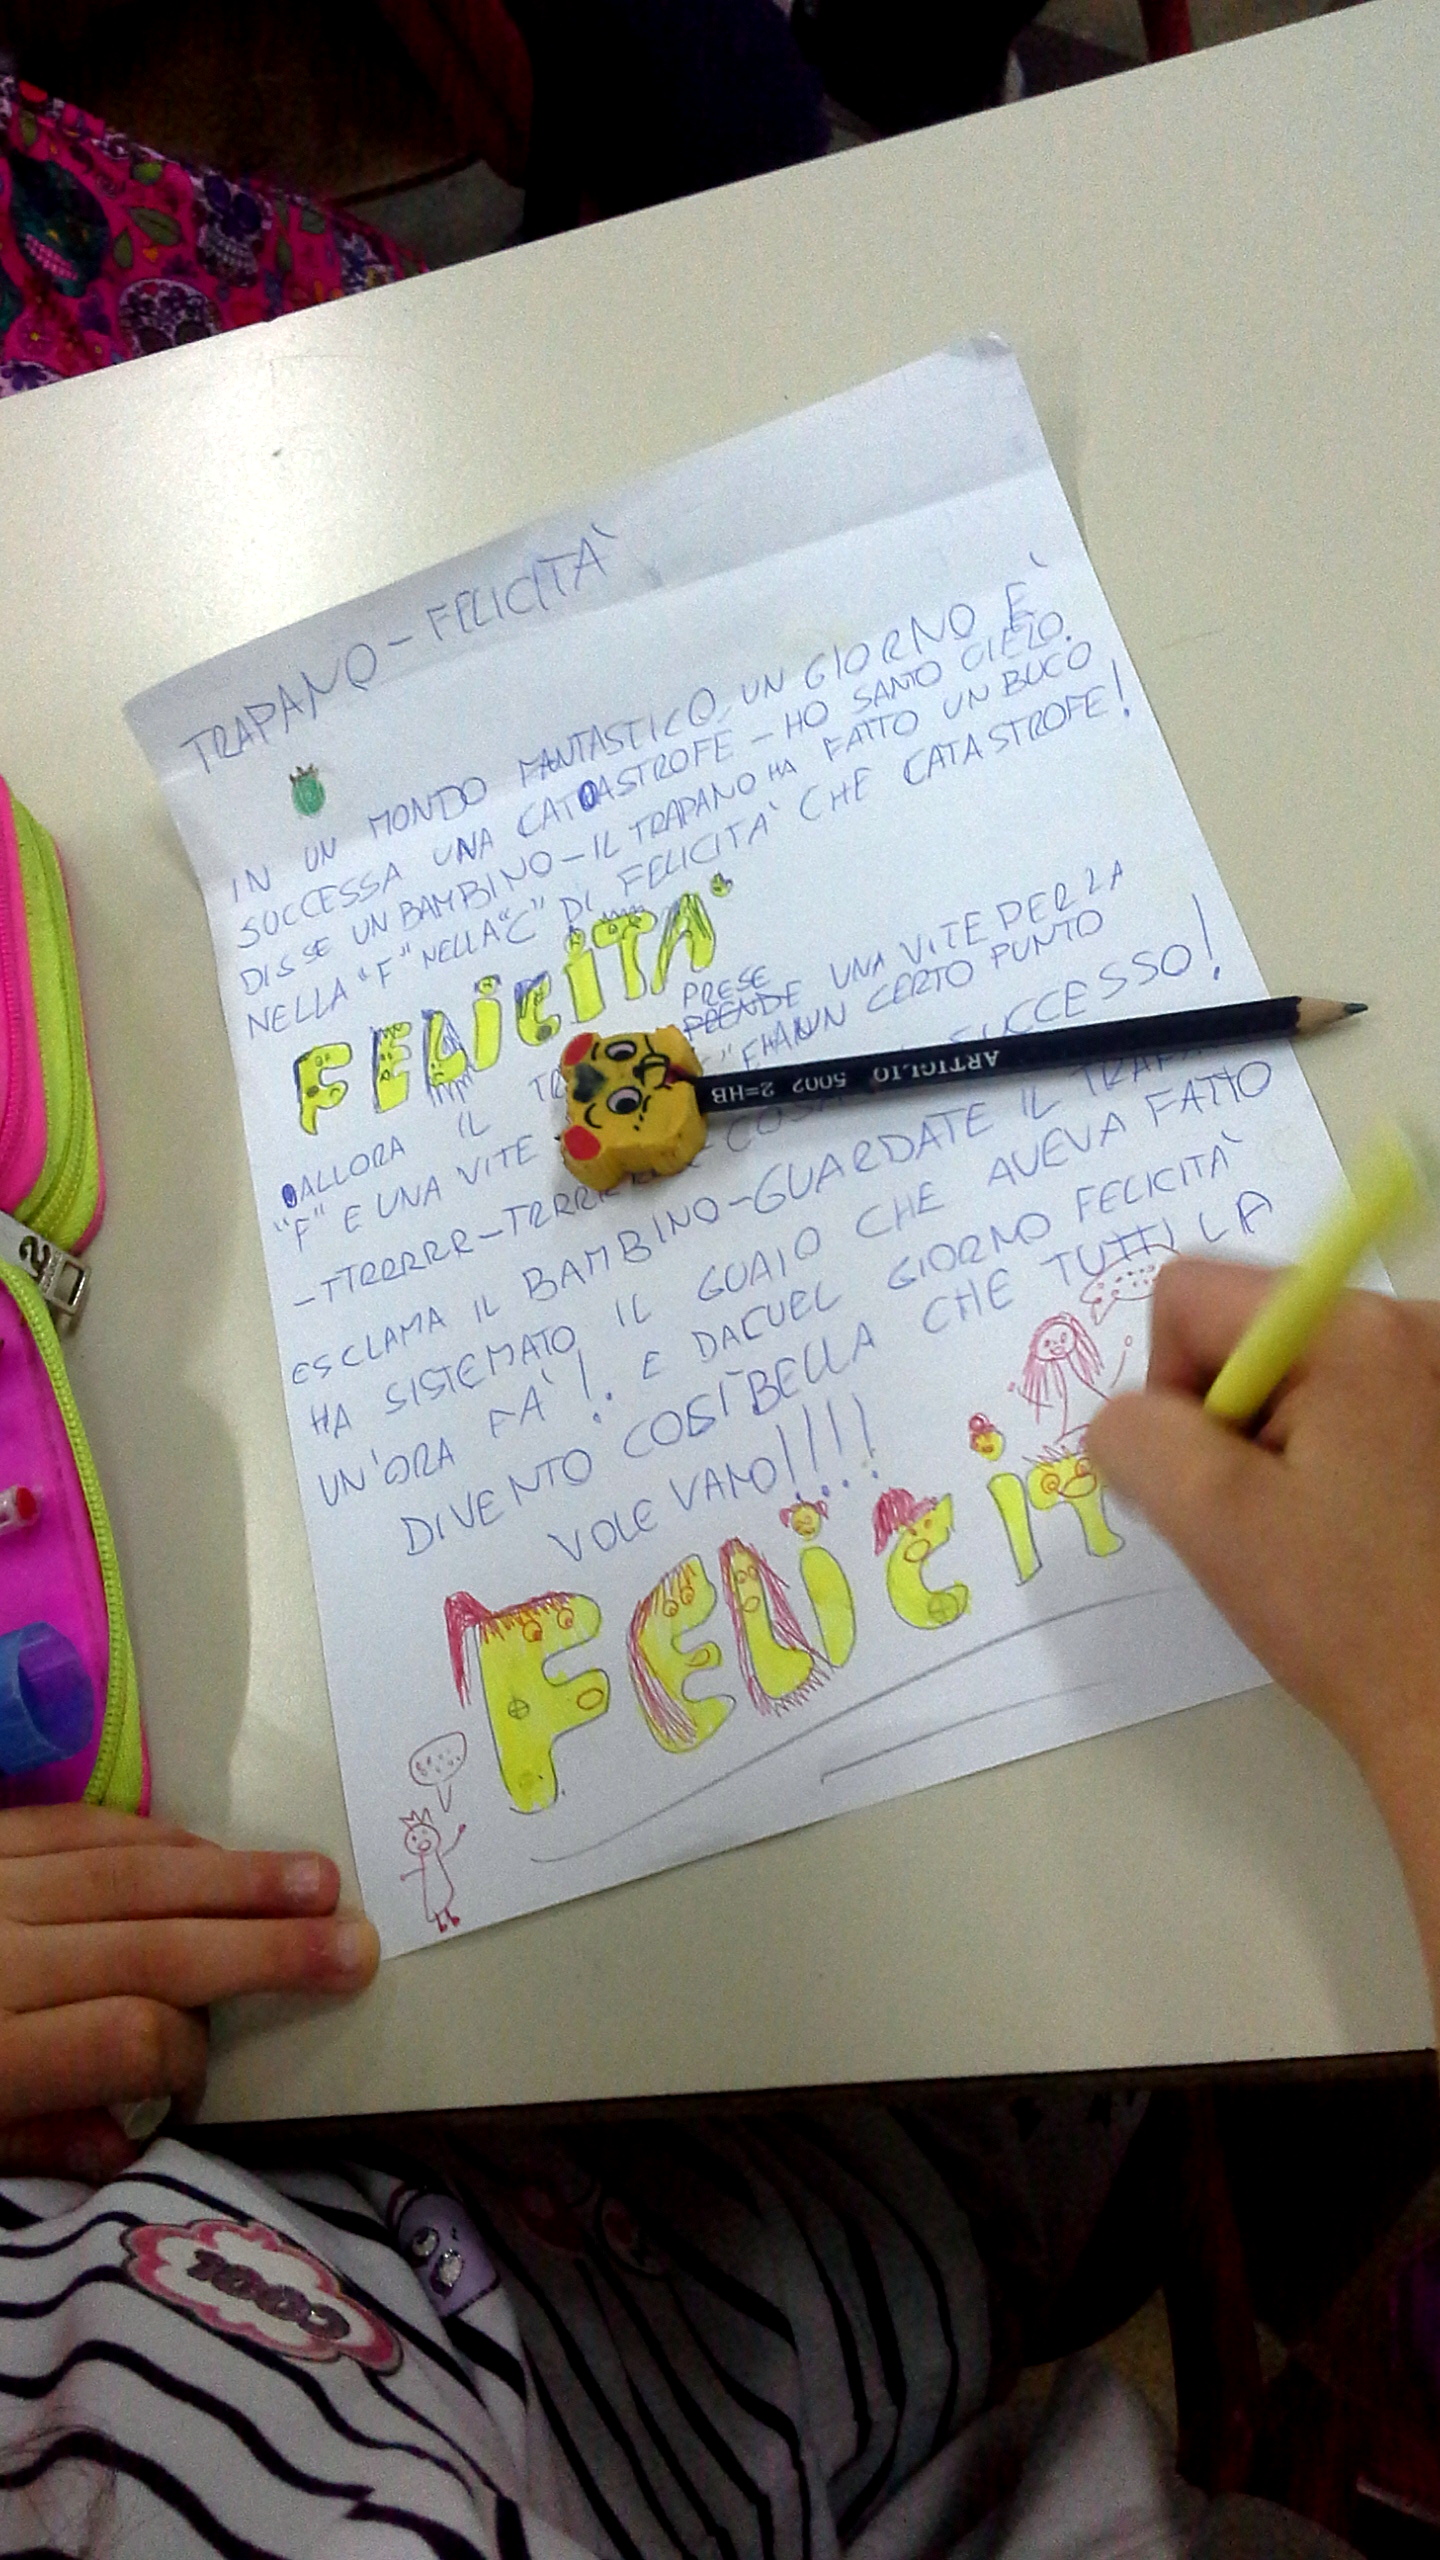 TRAPANO - FELICITÀ
IN UN MONDO FANTASTICO UN GIORNO È
SUCCESSA UNA CATOASTROFE - HO SANTO CIELO.
DISSE UN BAMBINO - IL TRAPANO HA FATTO UN BUCO
NELLA "F" NELLA "C" DI FELICITÀ CHE CATASTROFE!
FELICITÀ
PRESE
ALLORA IL PRENDE UNA VITE PER LA
"F" E UNA VITE UN CERTO PUNTO
-TTRRRRR-TRRRR SUCCESSO!
ESCLAMA IL BAMBINO-GUARDATE IL
HA SISTEMATO IL GUAIO CHE AVEVA FATTO
UN'ORA FA'!. E DACUEL GIORNO FELICITÀ
DIVENTO COSÌ BELLA CHE TUTTI LA
VOLEVANO!!!!
FELICIT
ARTIGLIO 5002 2=HB
COOL